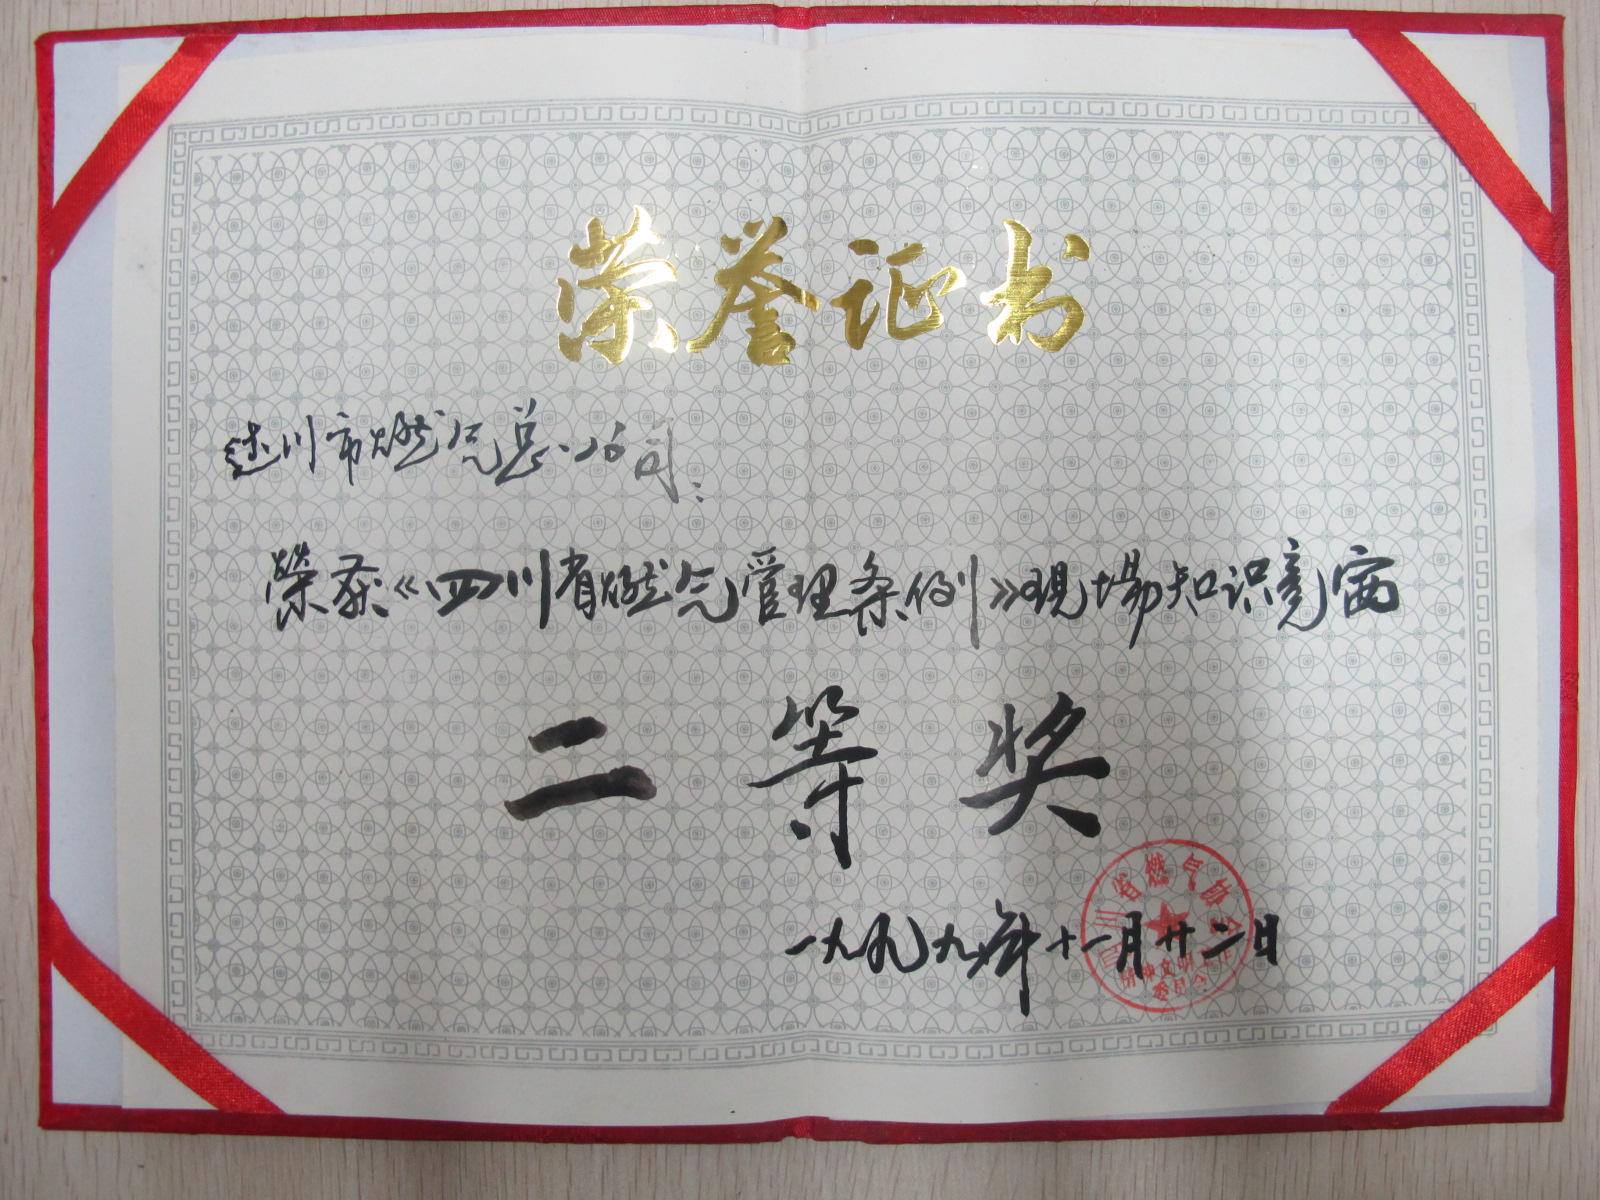 荣誉证书
达川市燃气总公司：
荣获《四川省燃气管理条例》现场知识竞赛
二等奖
四川省燃气协会
精神文明工作
委员会
一九九九年十一月廿二日